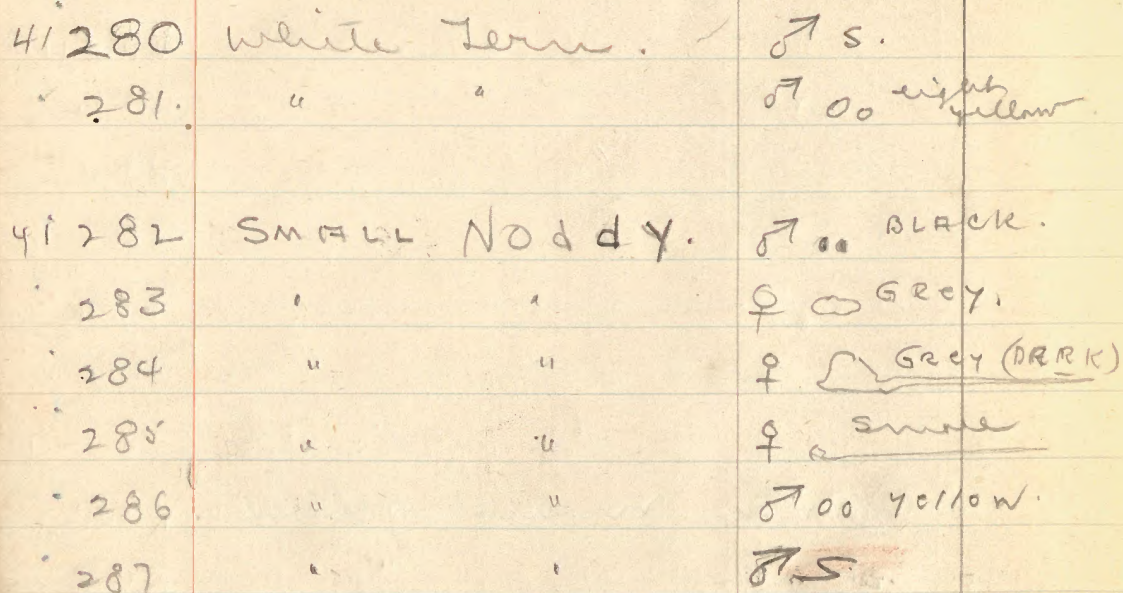 41 280 White Tern. ♂ S.
" 281. " " ♂ oo light yellow
41 282 SMALL NODDY. ♂ .. BLACK.
" 283 " " ♀ GREY.
" 284 " " ♀ GREY (DARK)
" 285 " " ♀ small
" 286 " " ♂ oo yellow.
" 287 " " ♂ S.